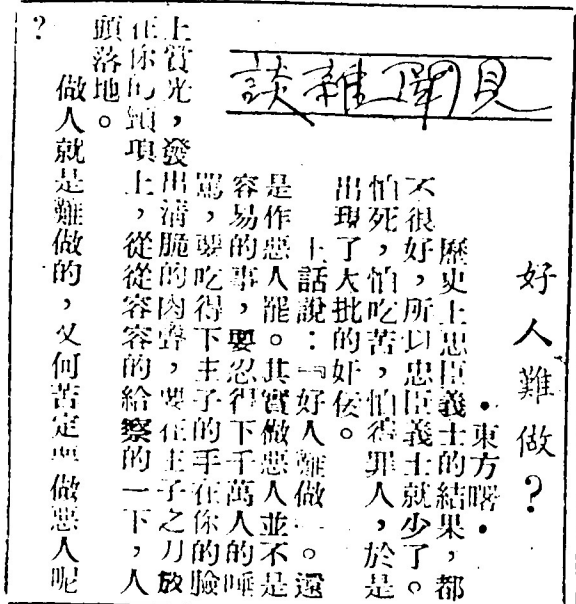 見聞雜談
好人難做？
・東方曙・
歷史上忠臣義士的結果，都
不很好，所以忠臣義士就少了。
怕死，怕吃苦，怕得罪人，於是
出現了大批的奸佞。
土話說：「好人難做」。還
是作惡人罷。其實做惡人並不是
容易的事，要忍得下千萬人的唾
罵，要吃得下主子的手在你的臉
上賞光，發出清脆的肉聲，要在主子之刀放
在你的頸項上，從從容容的給察的一下，人
頭落地。
做人就是難做的，又何苦定要做惡人呢
？